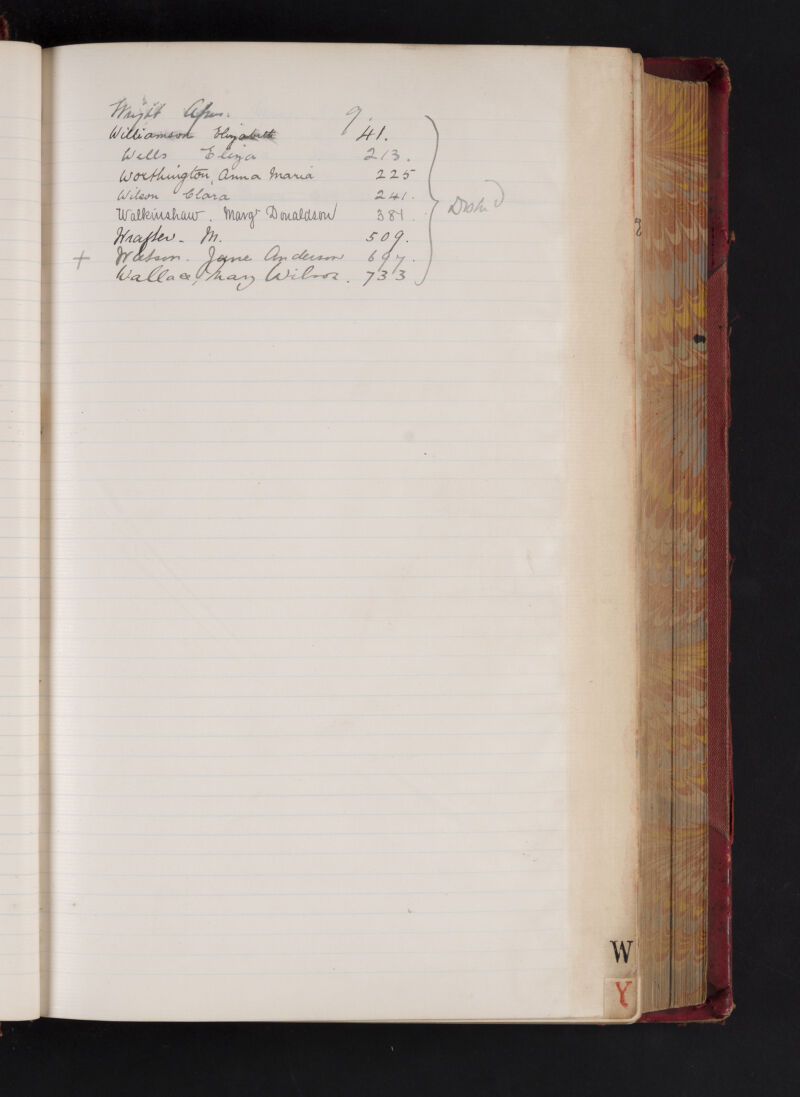 Wright 9.
Williamson Elizabeth 41.
Wells Eliza 213.
Worthington, Anna Maria 225
Wilson Clara 241.
Walkinshaw. Margt Donaldson 381.
Wrafter. M. 509.
+ Watson. Jane Anderson 697.
Wallace, Mary Wilson. 733
W
Y